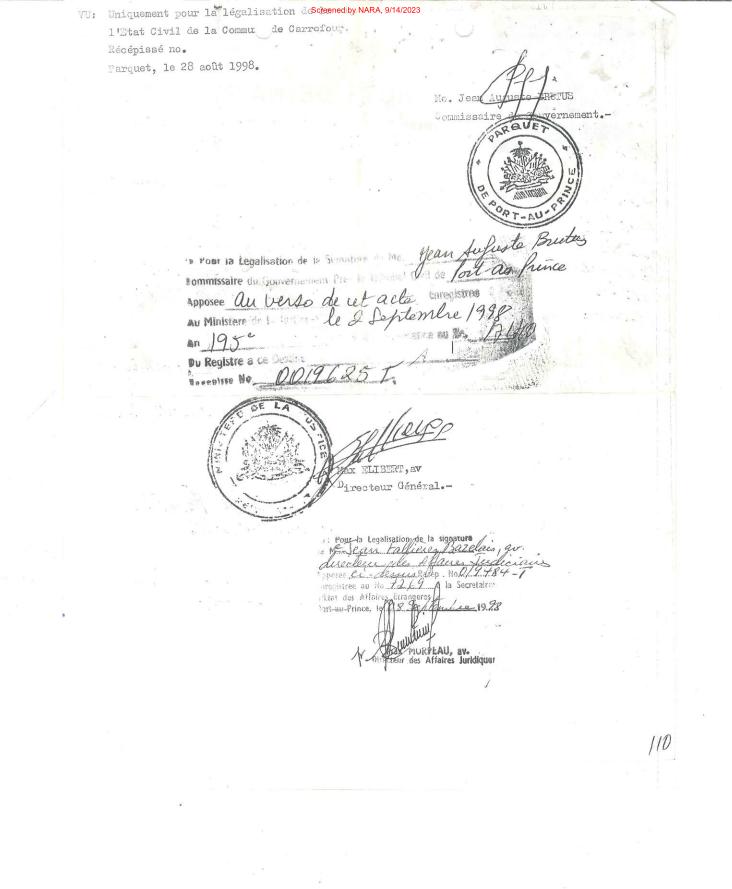 Screened by NARA, 9/14/2023
VU: Uniquement pour la légalisation
l'Etat Civil de la Commu de Carrefour.
Récépissé no.
Parquet, le 28 août 1998.
Me. Jean Auguste BRUTUS
Commissaire du Gouvernement.-
PARQUET
DE PORT-AU-PRINCE
Pour la Légalisation de la Signature de Me. Jean Auguste Brutus
Commissaire du Gouvernement Près le Tribunal Civil de Port-au-Prince
Apposée au verso de cet acte Enregistrée
Au Ministère de la Justice le 2 Septembre 1998
An 195e au No.
Du Registre à ce Destiné
Récépissé No 0019625 T.
MINISTERE DE LA JUSTICE
Max ELIBERT, av
Directeur Général.-
Pour la Légalisation de la signature
Me Jean Fallières Bazelais, av.
directeur des Affaires Judiciaires
Apposée ci-dessus Récep. No 019784-T
enregistrée au No 7269 à la Secrétairerie
d'Etat des Affaires Etrangères
Port-au-Prince, le 8 Septembre 1998
MUREAU, av.
Directeur des Affaires Juridiques
110